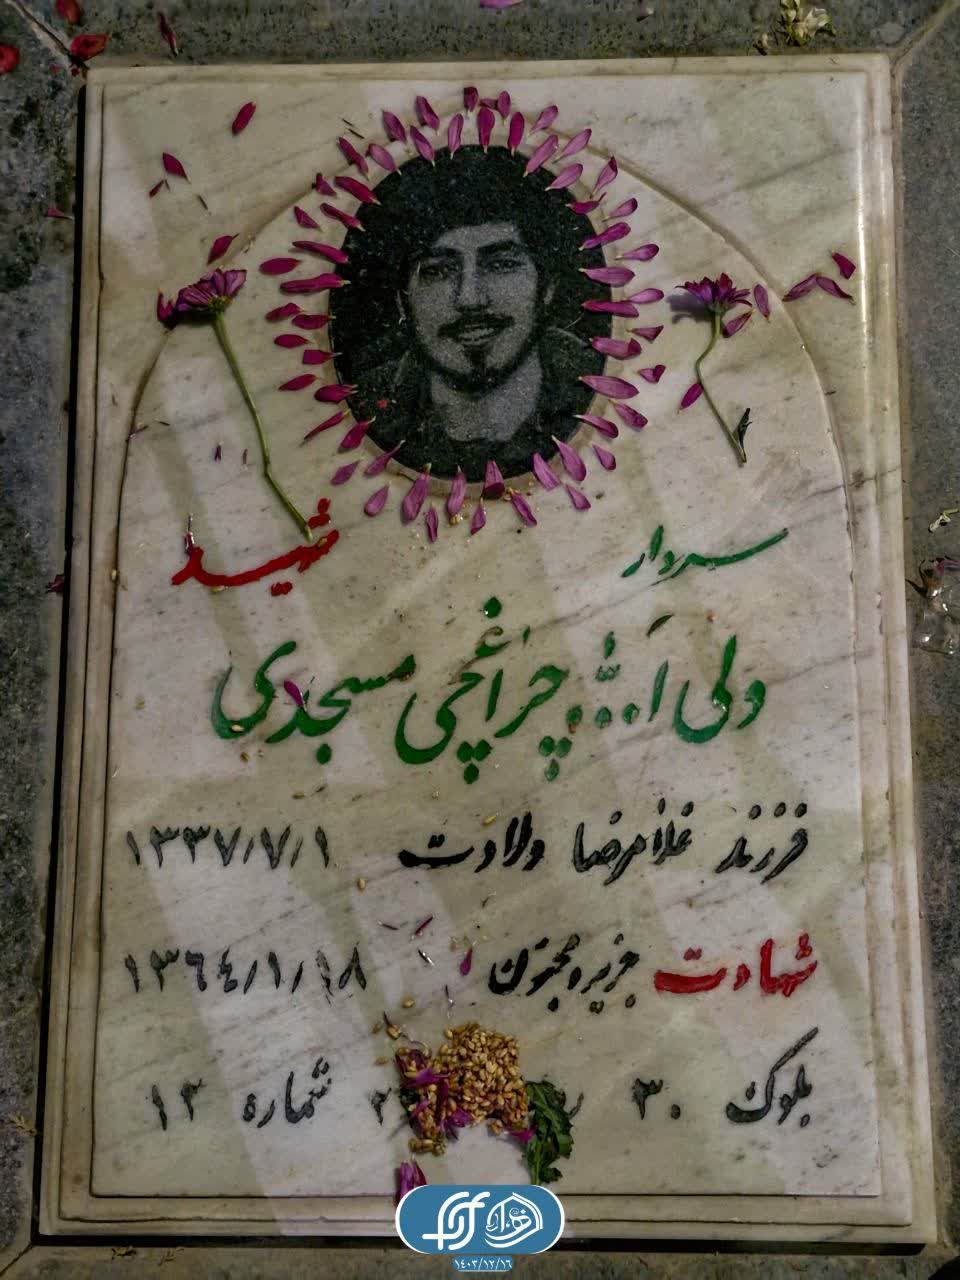 سردار شهید
ولی ا... چراغچی مسجدی
فرزند غلامرضا ولادت ۱۳۳۷/۷/۱
شهادت جزیره مجنون ۱۳۶۴/۱/۱۸
بلوک ۳۰ شماره ۱۳
۱۴۰۳/۱۲/۱۶